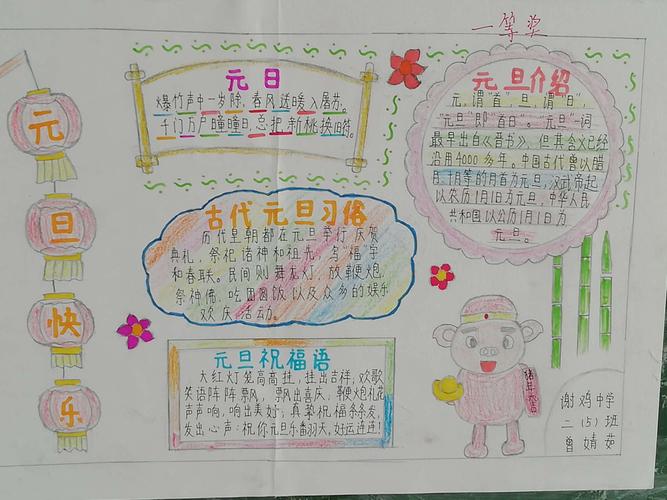 一等奖
元
旦
快
乐
元日
爆竹声中一岁除,春风送暖入屠苏。
千门万户曈曈日,总把新桃换旧符。
元旦介绍
元,谓"首",旦,谓"日",
"元旦"即"首日"。"元旦"一词
最早出自《晋书》,但其含义已经
沿用4000多年。中国古代曾以腊
月、十月等的月首为元旦,汉武帝起
以农历1月1日为元旦,中华人民
共和国以公历1月1日为
元旦。
古代元旦习俗
历代皇朝都在元旦举行庆贺
典礼,祭祀诸神和祖先,写"福"字
和春联。民间则舞龙灯,放鞭炮,
祭神佛、吃团圆饭以及众多的娱乐
欢庆活动。
元旦祝福语
大红灯笼高高挂,挂出吉祥,欢歌
笑语阵阵飘,飘出喜庆,鞭炮礼花
声声响,响出美好;真挚祝福条条发,
发出心声:祝你元旦乐翻天,好运连连!
谢鸡中学
二(5)班
曾婧茹